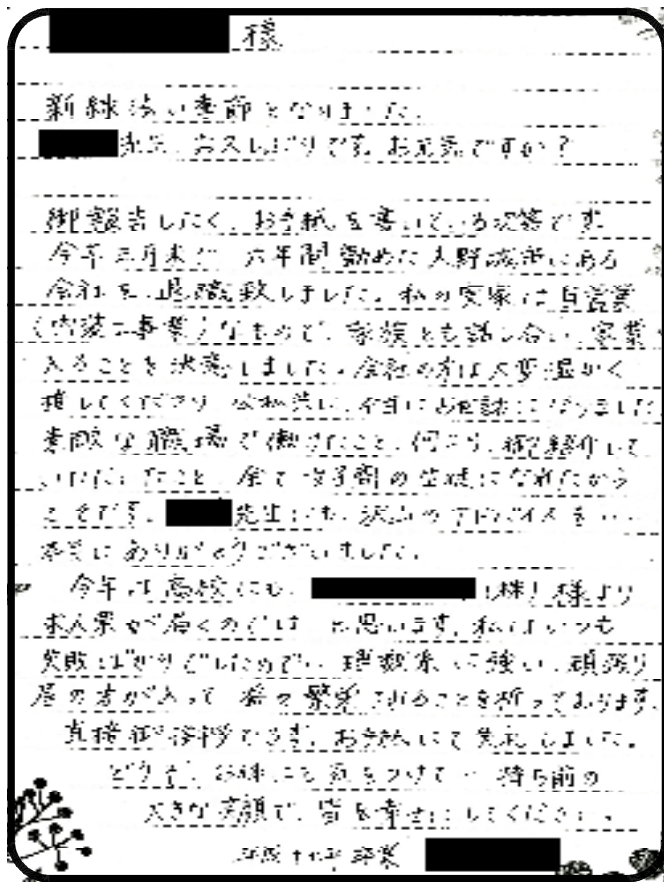 様
新緑 季節となりました。
先生、お久しぶりです。お元気ですか？
御報告したく、お手紙を書いている次第です。
今年三月末で、六年間勤めた大野城市にある
会社を退職致しました。私の実家は自営業
（内装工事業）なもので、家族とも話し合い、家業
入ることを決意しました。会社の方は大変温かく
して 公私共に、 お世話になりました
素敵な職場で働けたこと、何より、御紹介して
いただいたこと、全て 学園の生徒になれたから
こそです。 先生にも、沢山のアドバイスを
本当にありがとうございました。
今年は高校にも、 （株）様より
求人票が届くのでは と思います。私はいつも
失敗ばかりでしたので、理数系に強い、頑張り
屋の方が入って 繁栄 されることを祈っております。
直接御挨拶できず、お手紙にて失礼しました。
どうぞ、お体にも気をつけて 持ち前の
大きな笑顔で、皆を幸せにしてください。
平成十九年卒業